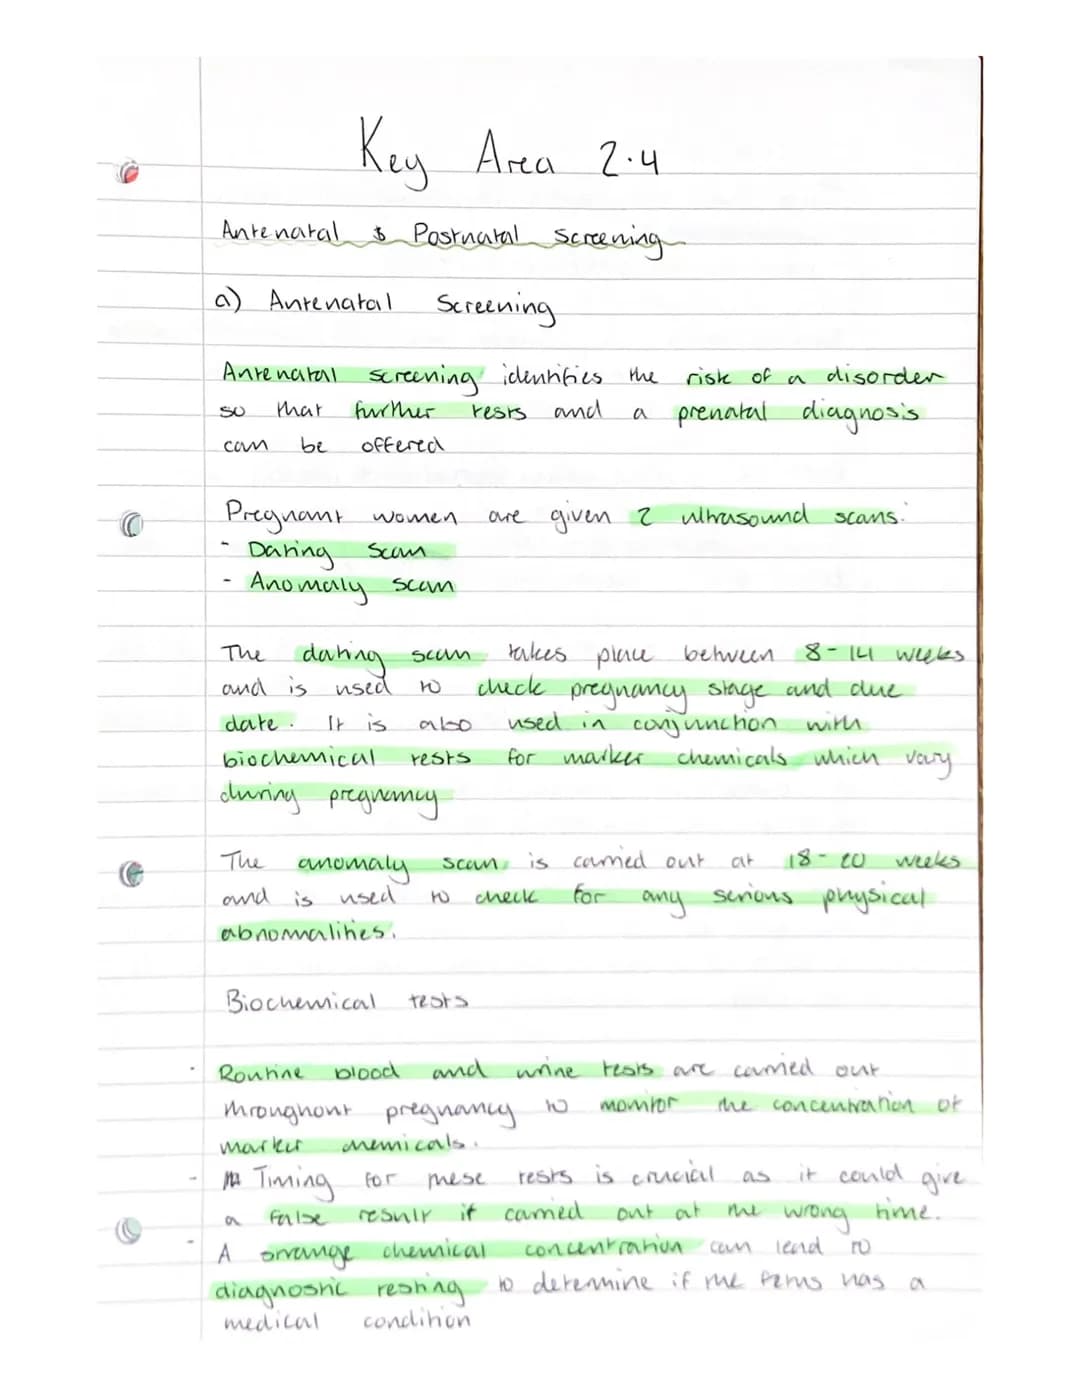 Key Area 2.4
Antenatal & Postnatal Screening
a) Antenatal Screening
Antenatal screening identifies the risk of a disorder
so that further tests and a prenatal diagnosis
can be offered
Pregnant women are given 2 ultrasound scans:
- Dating Scan
- Anomaly scan
The dating scan takes place between 8-14 weeks
and is used to check pregnancy stage and due
date. It is also used in conjunction with
biochemical tests for marker chemicals which vary
during pregnancy
The anomaly scan is carried out at 18-20 weeks
and is used to check for any serious physical
abnormalities.
Biochemical tests
- Routine blood and urine tests are carried out
throughout pregnancy to monitor the concentration of
marker chemicals.
- Timing for these tests is crucial as it could give
a false result if carried out at the wrong time.
- A strange chemical concentration can lead to
diagnostic testing to determine if the fetus has a
medical condition